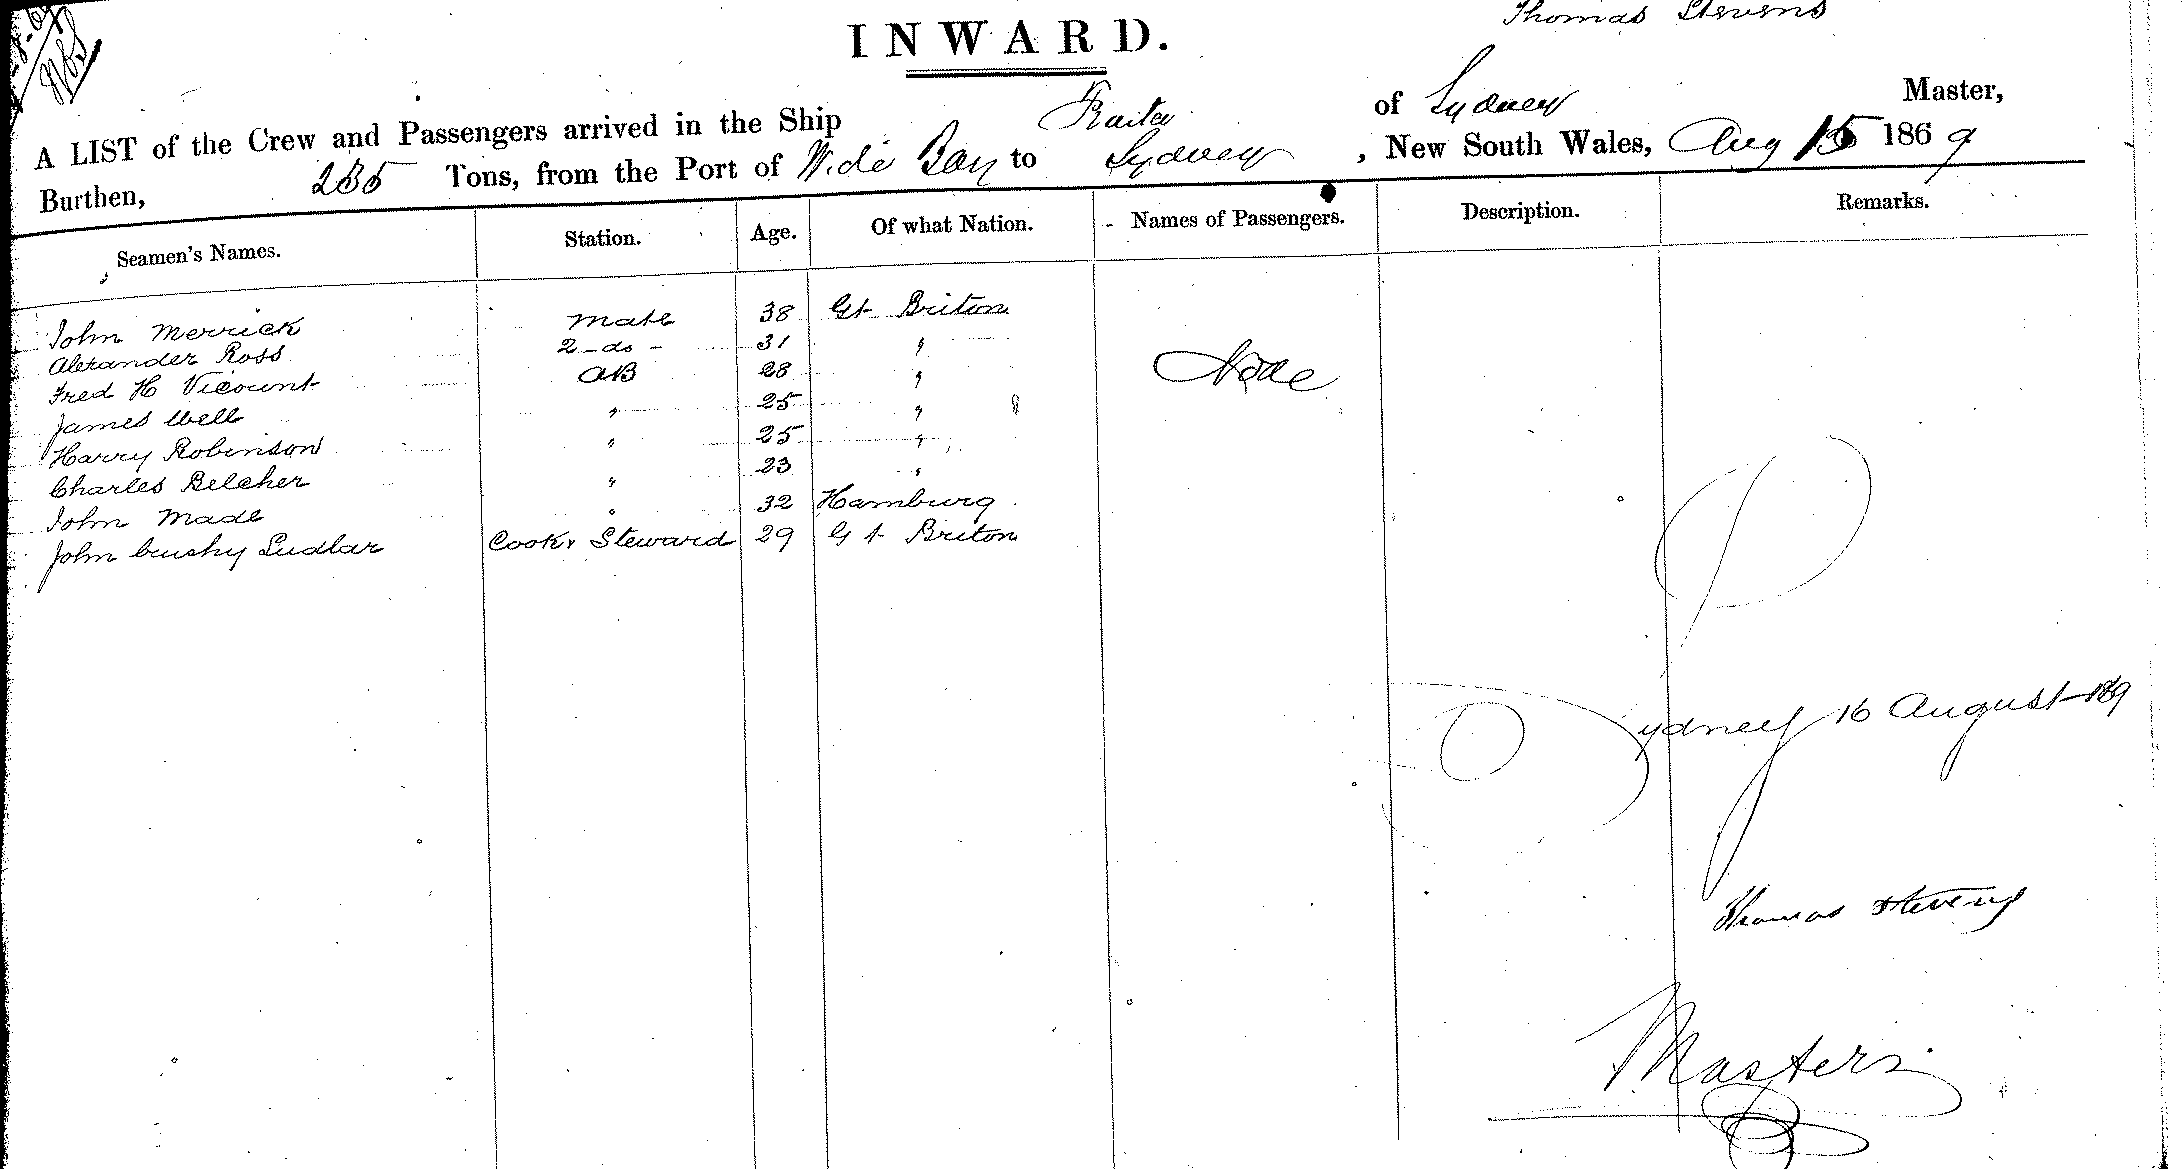 INWARD.
Thomas Stevens
A LIST of the Crew and Passengers arrived in the Ship of Sydney Master,
Burthen, 235 Tons, from the Port of Wide Bay to Sydney, New South Wales, Aug 15 1869
Seamen's Names. Station. Age. Of what Nation. Names of Passengers. Description. Remarks.
John Merrick Mate 38 Gt Briton
Alexander Ross 2 - do - 31 "
Fred H Vicount AB 28 " None
James Well " 25 "
Harry Robinson " 25 "
Charles Belcher " 23 "
John Made " 32 Hamburg
John Ludlar Cook & Steward 29 Gt Briton
Sydney 16 August 1869
Thomas Stevens
Master